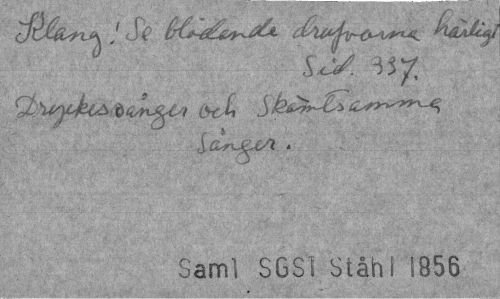 Klang! Se blödande drufvorna härligt
Sid. 337.
Dryckessånger och Skämtsamma
Sånger.
Saml SGS1 Ståhl 1856